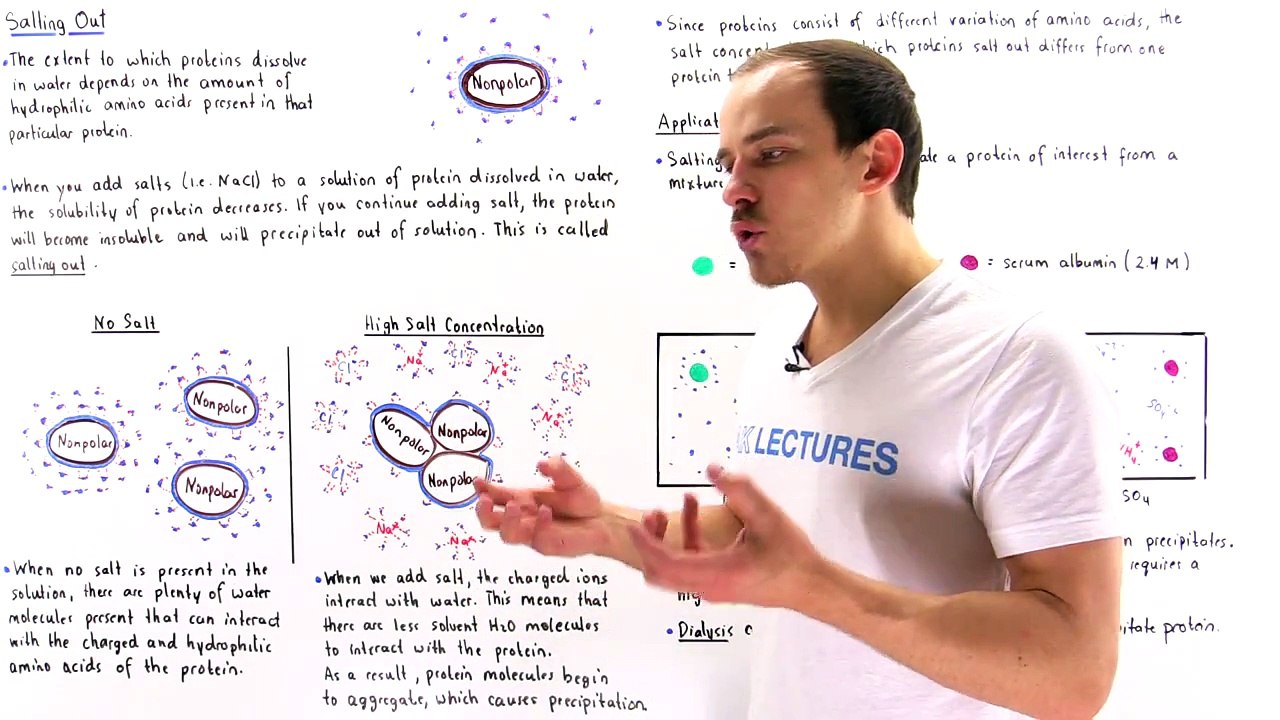 Salting Out
•The extent to which proteins dissolve
in water depends on the amount of
hydrophilic amino acids present in that
particular protein.
Nonpolar
•When you add salts (i.e. NaCl) to a solution of protein dissolved in water,
the solubility of protein decreases. If you continue adding salt, the protein
will become insoluble and will precipitate out of solution. This is called
salting out.
No Salt
Nonpolar
Nonpolar
Nonpolar
•When no salt is present in the
solution, there are plenty of water
molecules present that can interact
with the charged and hydrophilic
amino acids of the protein.
High Salt Concentration
Cl⁻ Na⁺ Cl⁻ Na⁺ Cl⁻
Cl⁻ Na⁺
Nonpolar
Nonpolar
Nonpolar
Cl⁻
Na⁺ Na⁺
•When we add salt, the charged ions
interact with water. This means that
there are less solvent H₂O molecules
to interact with the protein.
As a result, protein molecules begin
to aggregate, which causes precipitation.
•Since proteins consist of different variation of amino acids, the
salt proteins salt out differs from one
protein
•Salting a protein of interest from a
mixture
=
= serum albumin (2.4 M)
SO₄
precipitates.
requires a
•Dialysis protein.
LECTURES